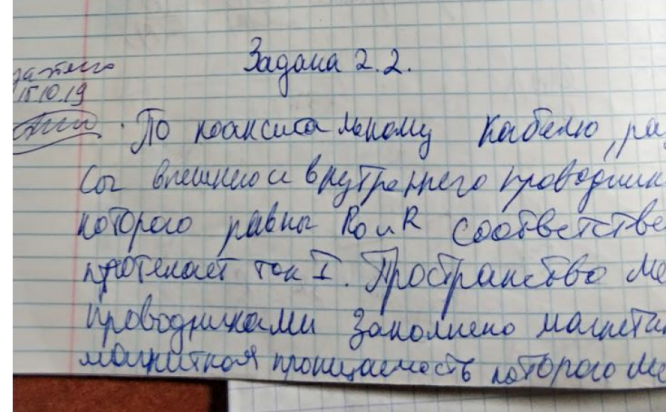 Задача 2.2.
15.10.19
По коаксиальному кабелю, ра
сы внешнего и внутреннего проводник
которого равны R₀ и R соответстве
протекает ток I. Пространство ме
проводниками заполнено магнети
магнитная проницаемость которого ме